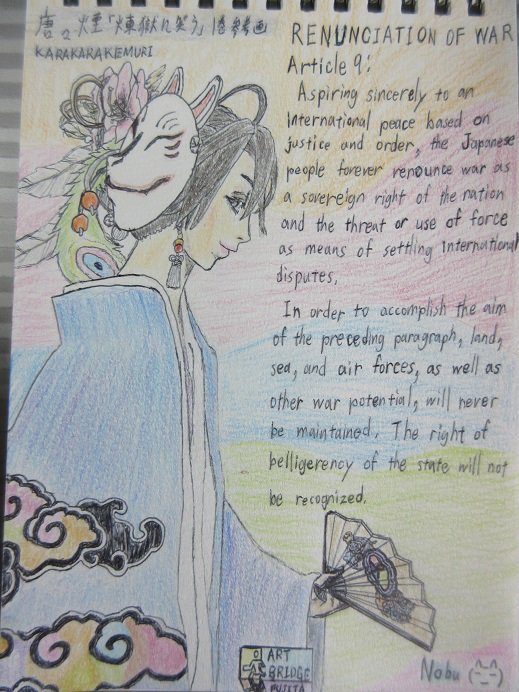 唐々煙「煉獄に笑う」1巻参考画
KARAKARAKEMURI
RENUNCIATION OF WAR
Article 9:
Aspiring sincerely to an
international peace based on
justice and order, the Japanese
people forever renounce war as
a sovereign right of the nation
and the threat or use of force
as means of settling international
disputes.
In order to accomplish the aim
of the preceding paragraph, land,
sea, and air forces, as well as
other war potential, will never
be maintained. The right of
belligerency of the state will not
be recognized.
ART
BRIDGE
FUJITA
Nobu